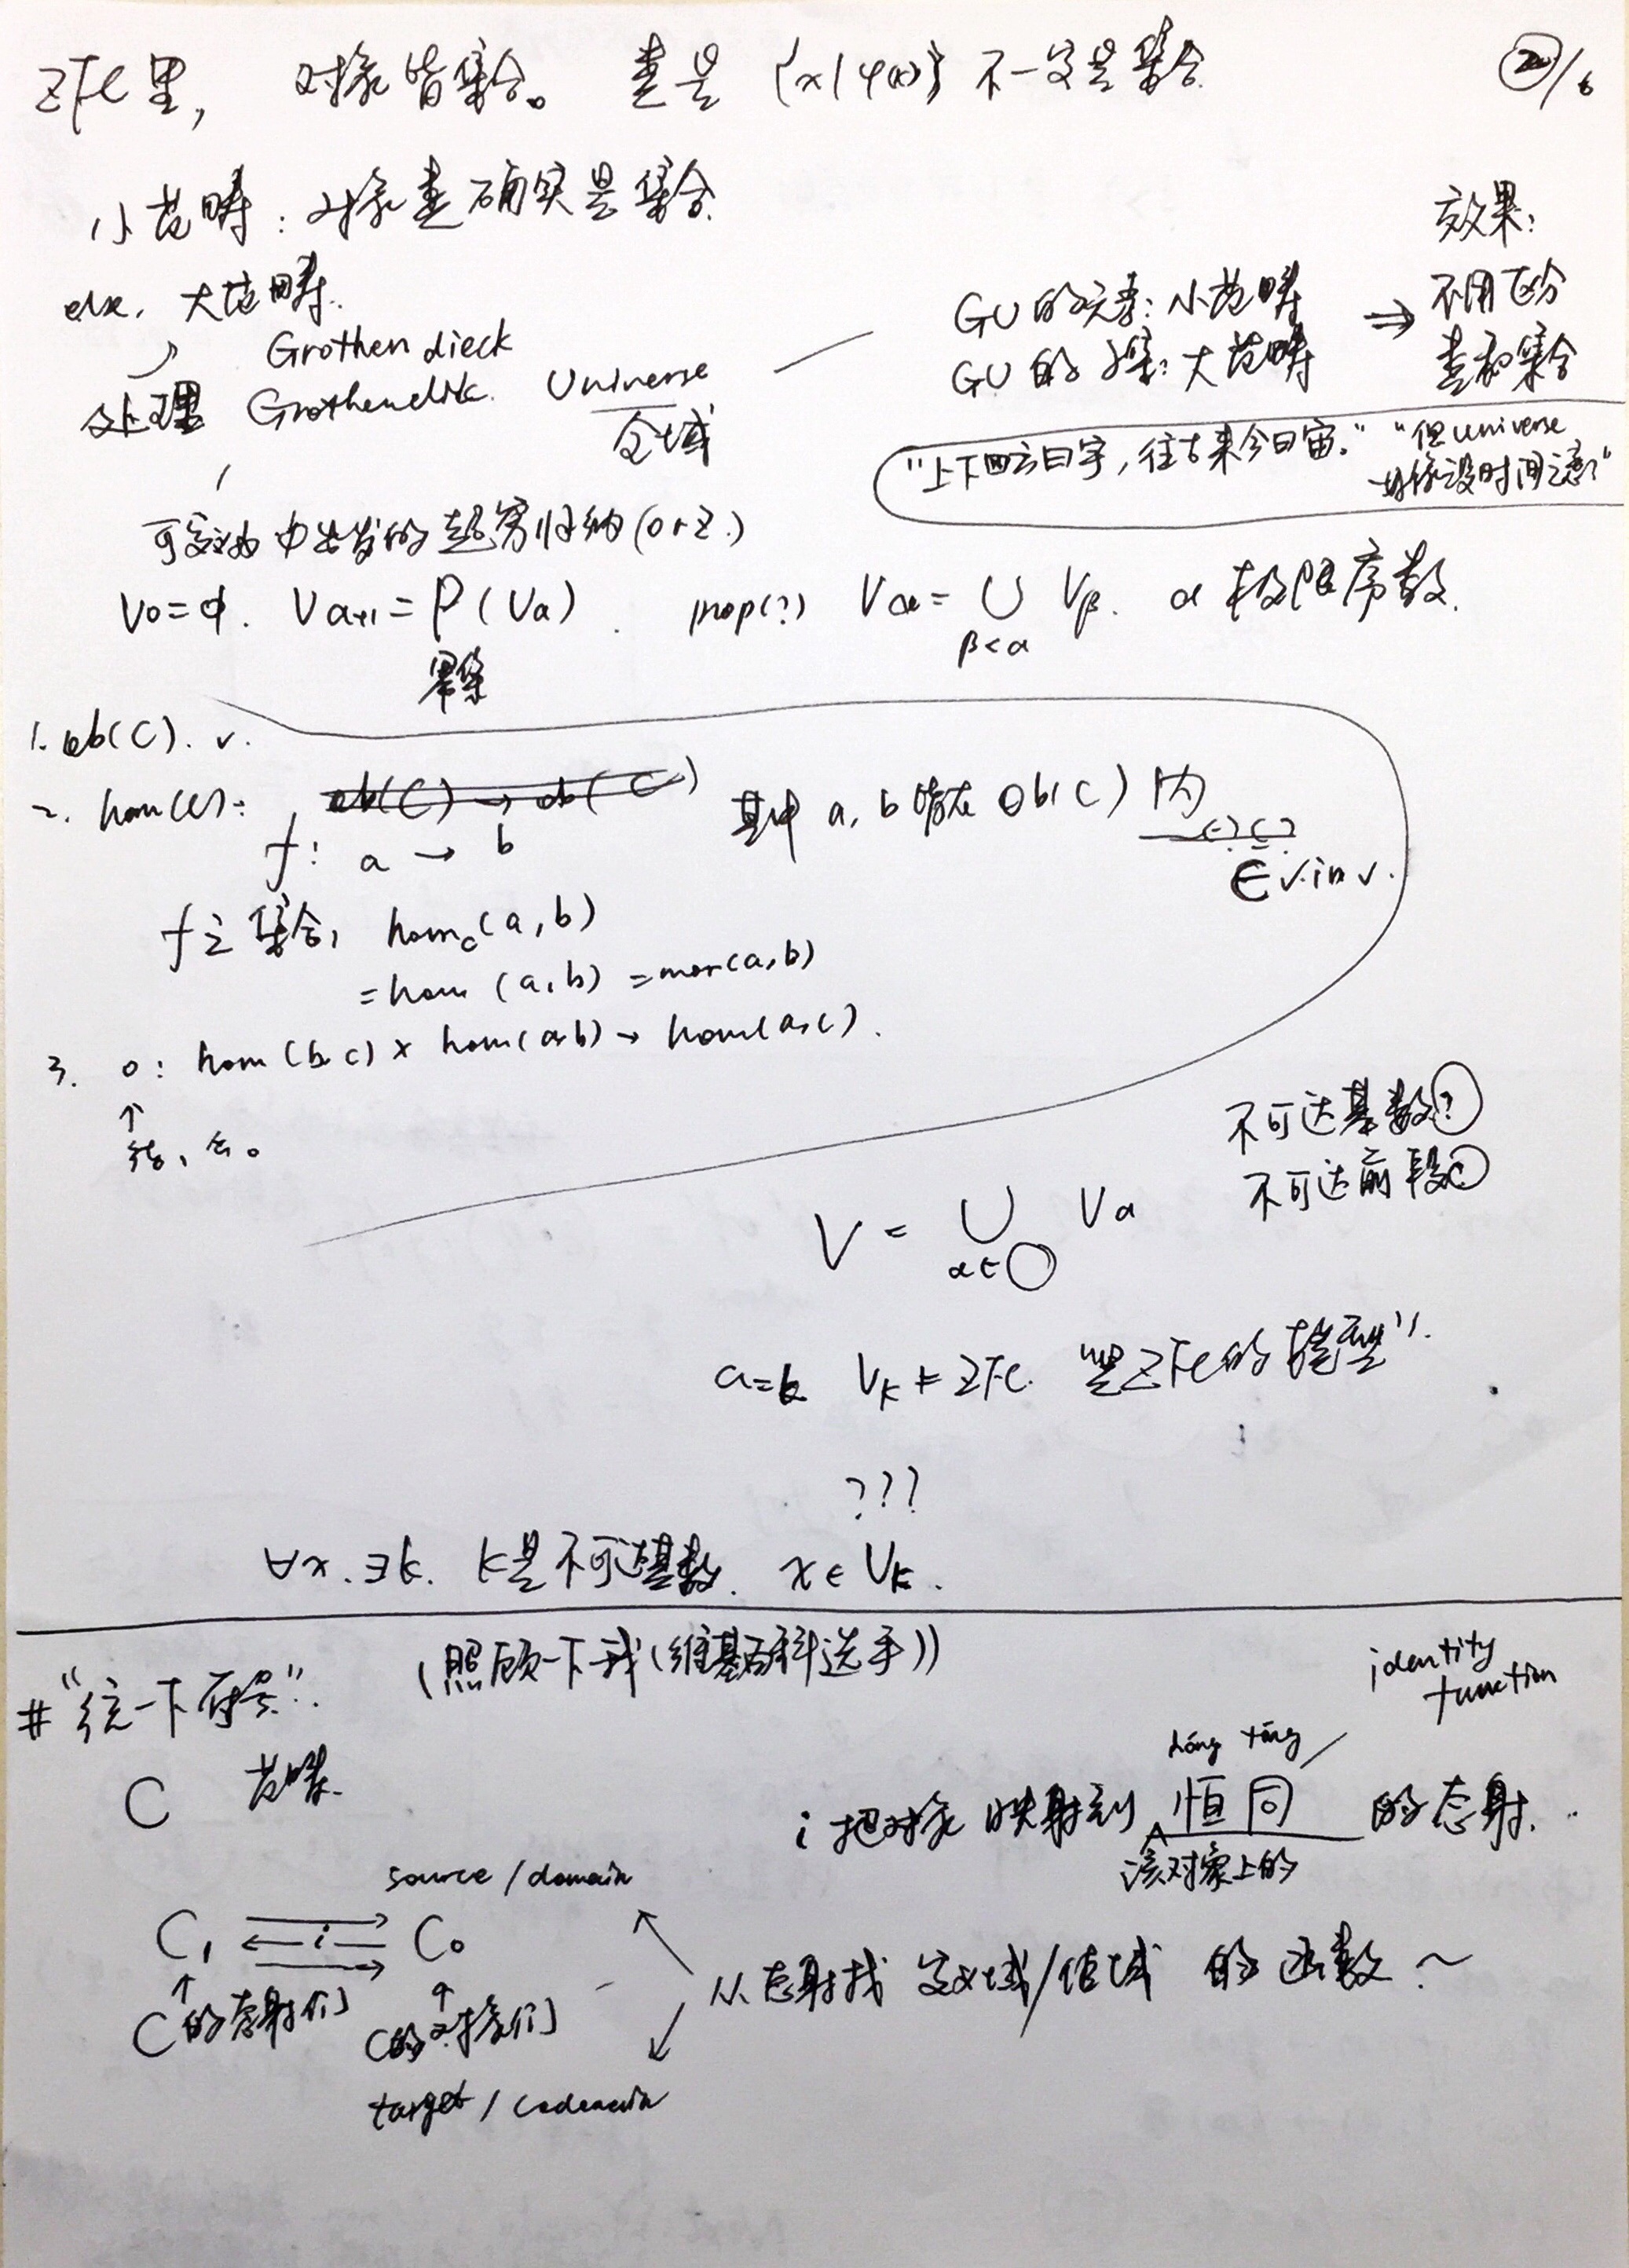 ZFC里, 对象皆集合。 类是 {x|φ(x)} 不一定是集合.
②/6
小范畴: 对象类确实是集合.
else. 大范畴.
处理
Grothendieck
Grothendik. Universe
全域
GU的元素: 小范畴
GU的子集: 大范畴
⇒
效果:
不用区分
类和集合
"上下四方曰宇, 往古来今曰宙." "但universe
好像没时间之意?"
可类 中出发的超穷归纳 (or Z.)
V0=φ. Vα+1=P(Vα). prop(?) Vα= ∪ Vβ. α极限序数.
β<α
幂集
1. ob(C). v.
2. hom(C): ob(C) → ob(C) 其中 a, b 皆在 ob(C) 内
f: a → b
∈ v. in v.
f之集合, homc(a,b)
=hom (a,b) =mor(a,b)
3. o: hom(b,c) × hom(a,b) → hom(a,c).
↑
结、合。
不可达基数?
不可达前段
V = ∪ Vα
α∈
α=k Vk ⊨ ZFC. "是ZFC的模型".
???
∀x.∃k. k是不可达基数. x∈Vk.
#"统一下符号". (照顾一下我(维基百科选手))
C 范畴.
identity
function
héng tóng
i 把对象映射到 恒同 的态射.
该对象上的
source / domain
C1 i C0
↑ ↑
C的态射们 C的对象们
target / codomain
从态射找 定义域/值域 的函数~